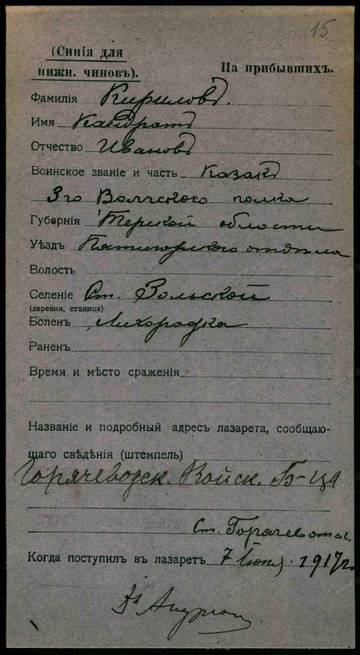 15
(Синія для
нижн. чиновъ).
На прибывшихъ.
Фамилія Кириловъ.
Имя Кандратъ
Отчество Ивановъ
Воинское званіе и часть казакъ
3го Волгскаго полка
Губернія Терской области
Уѣздъ Пятигорскаго отдѣла
Волость
Селеніе Ст. Зольской
(деревня, станица)
Боленъ Лихорадка
Раненъ
Время и мѣсто сраженія
Названіе и подробный адресъ лазарета, сообщаю-
щаго свѣдѣнія (штемпель)
Горячеводск. Войск. Б-ца
Ст. Горячевотск.
Когда поступилъ въ лазаретъ 7 Іюня 1917г.